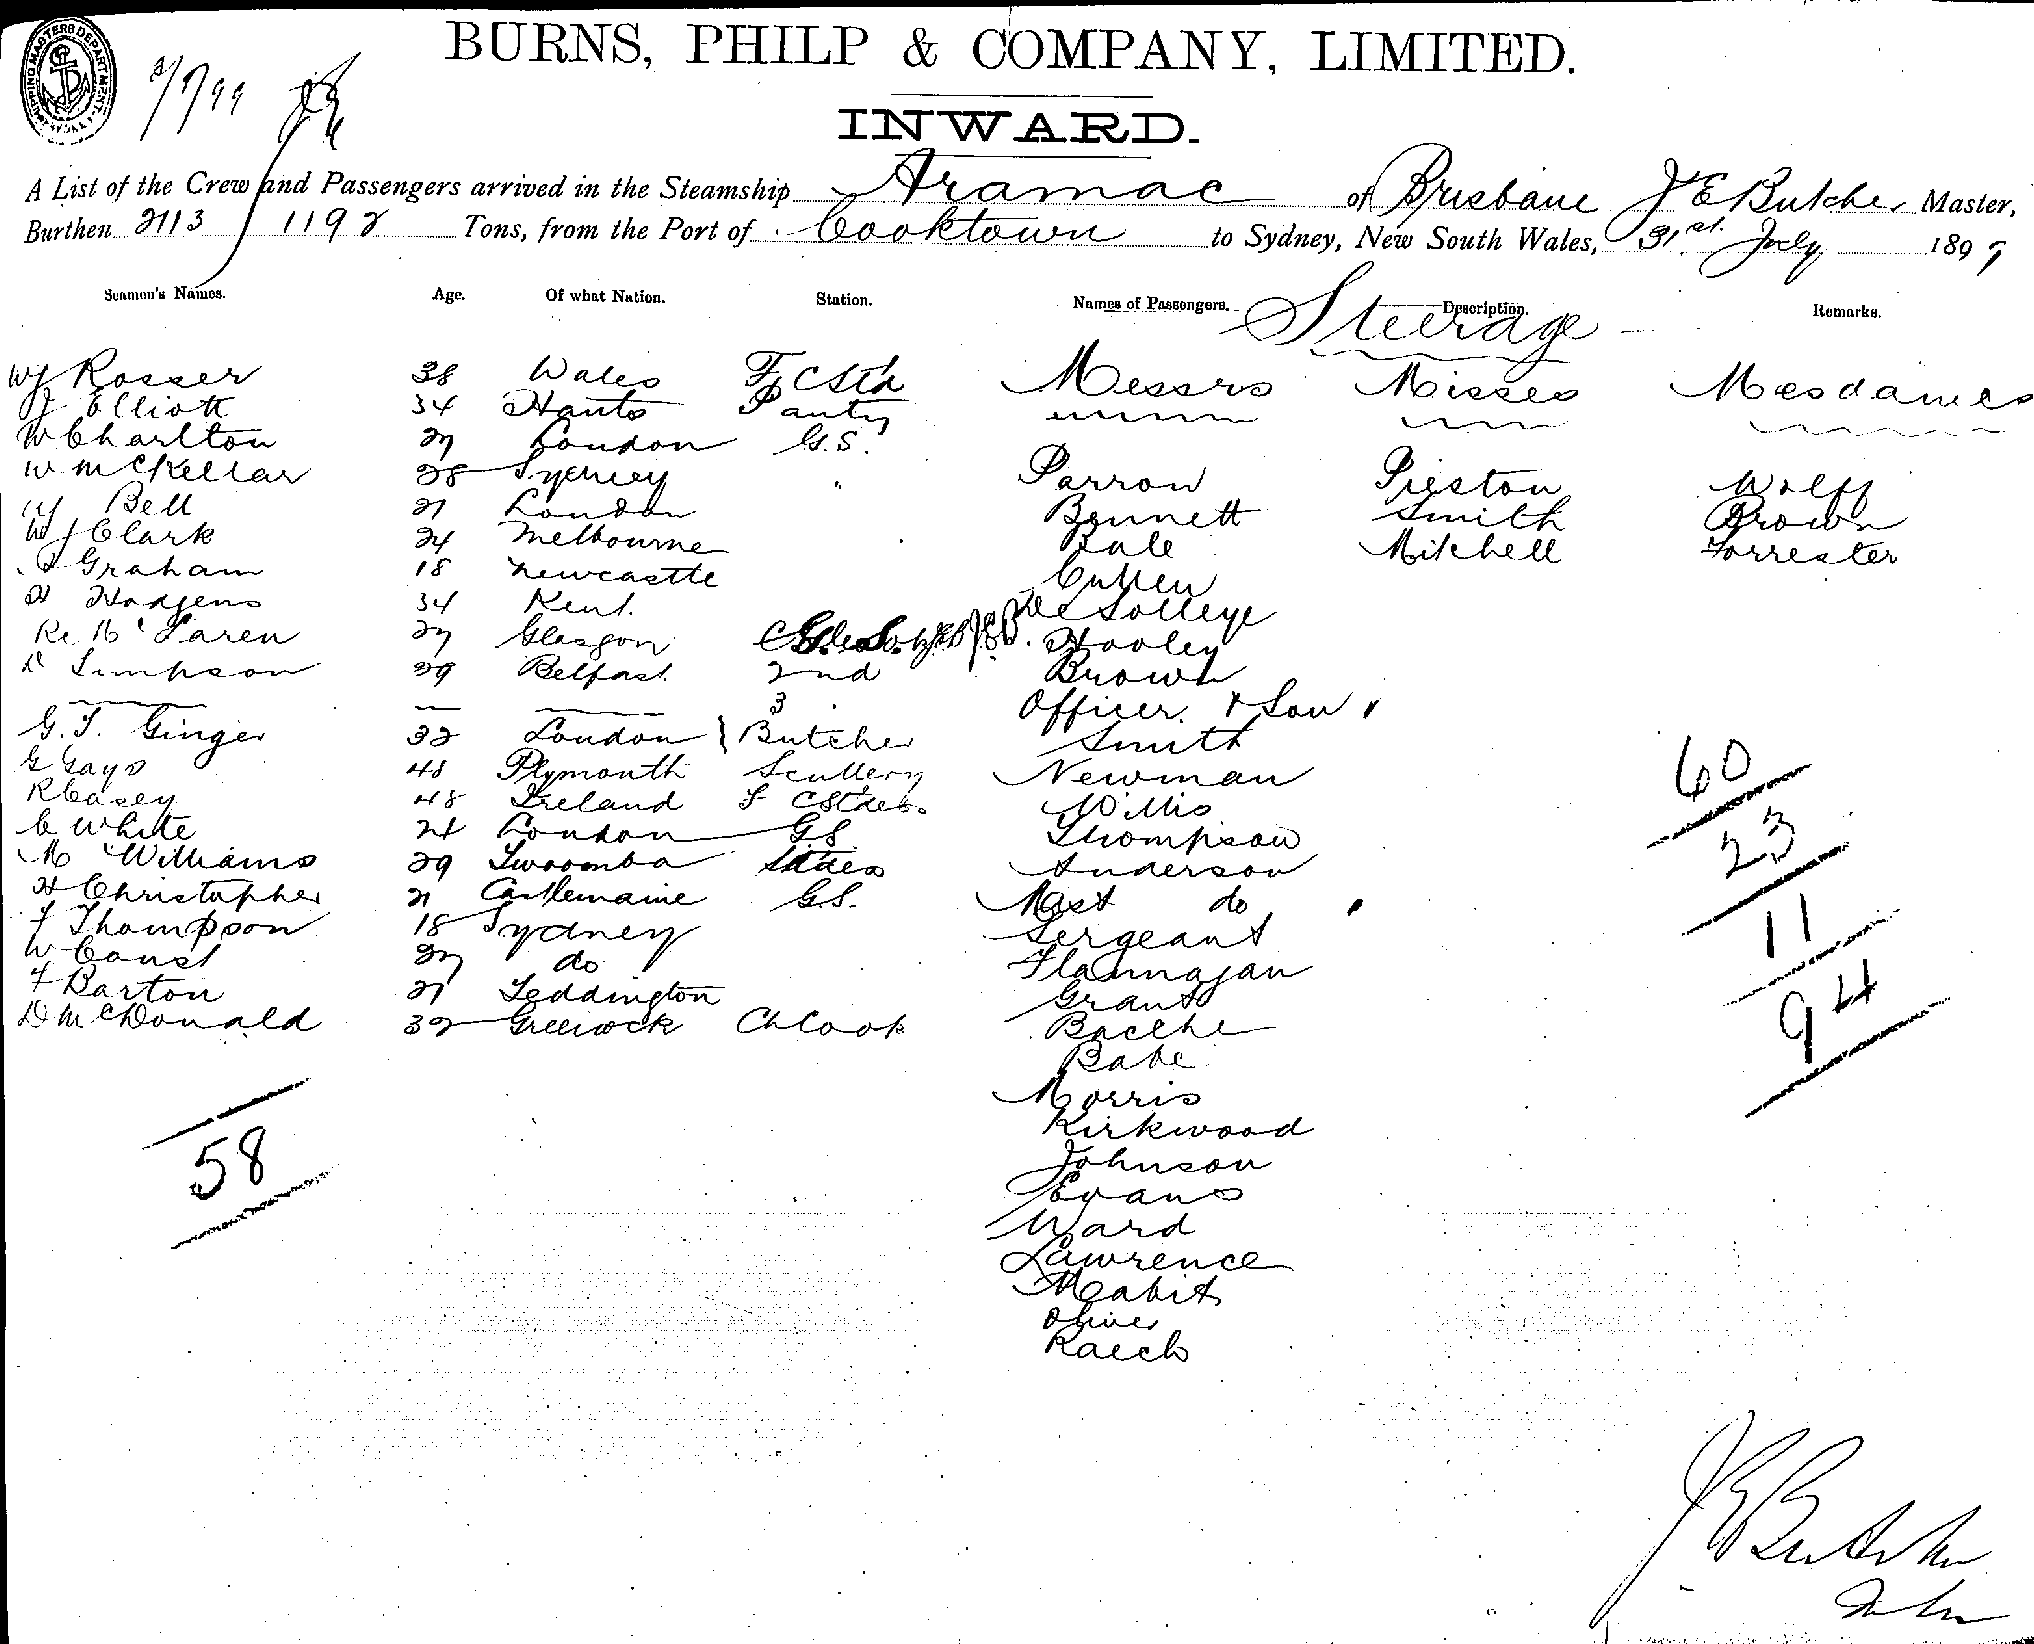 BURNS, PHILP & COMPANY, LIMITED.
INWARD.
A List of the Crew and Passengers arrived in the Steamship Aramac of Brisbane J E Butcher Master,
Burthen 2113 1192 Tons, from the Port of Cooktown to Sydney, New South Wales, 31st July 1899
Seamen's Names. Age. Of what Nation. Station. Names of Passengers. Description. Remarks.
Steerage
WJ Rosser 38 Wales F C Std Messrs Misses Mesdames
J Elliott 34 Hants Pantry
W Charlton 27 London G.S.
W McKellar 28 Sydney " Parrow Preston Wolff
Bell 21 London Bennett Smith Brown
WJ Clark 24 Melbourne Mitchell Forrester
Graham 18 Newcastle Cullen
H Hodgens 34 Kent
27 Glasgow Hooley
D Simpson 29 Belfast 2nd Brown
3 Officer & Son "
G.T. Ginger 32 London Butcher Smith
G Gays 48 Plymouth Scullery Newman
R Casey 48 Ireland Willis
C White 24 London GS Thompson
M Williams 29 Twoomba Anderson
H Christopher 21 Castlemaine G.S. Mast do "
F Thompson 18 Sydney Sergeant
W Const 27 do Flannagan
F Barton 21 Teddington Grant
D McDonald 32 Greenock Ch Cook
Babe
Morris
Kirkwood
Johnson
Evans
Ward
Lawrence
Meabit
Oliver
60
23
11
94
58
J E Butcher